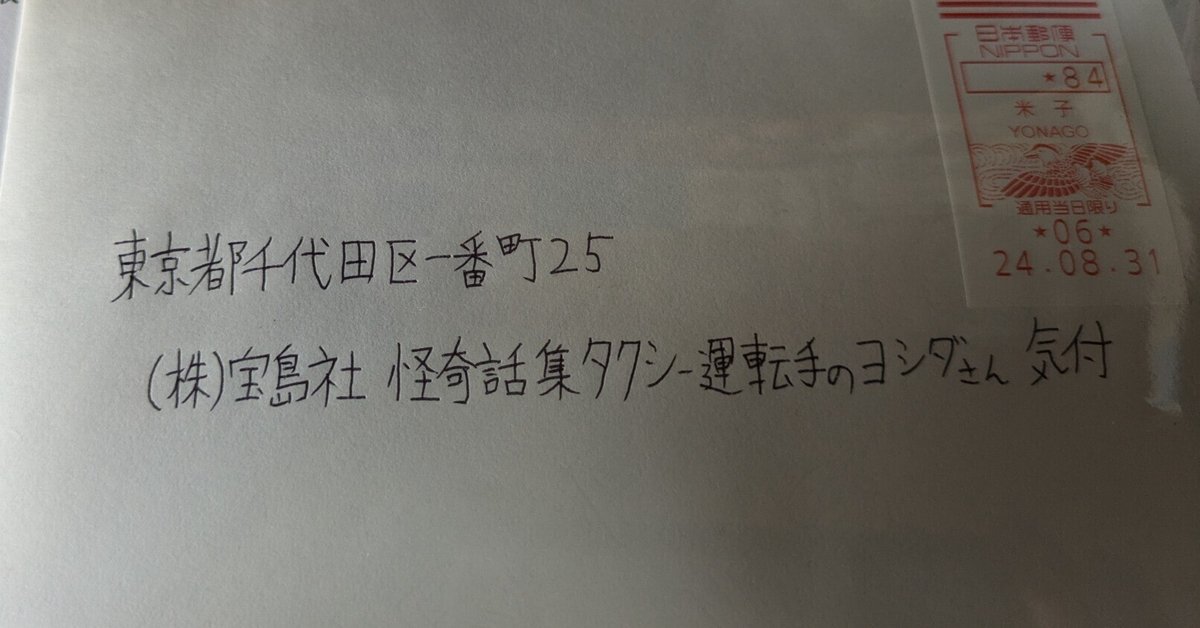 日本郵便
NIPPON
★84
米子
YONAGO
通用当日限り
★06★
24.08.31
東京都千代田区一番町25
(株)宝島社 怪奇話集タクシー運転手のヨシダさん 気付